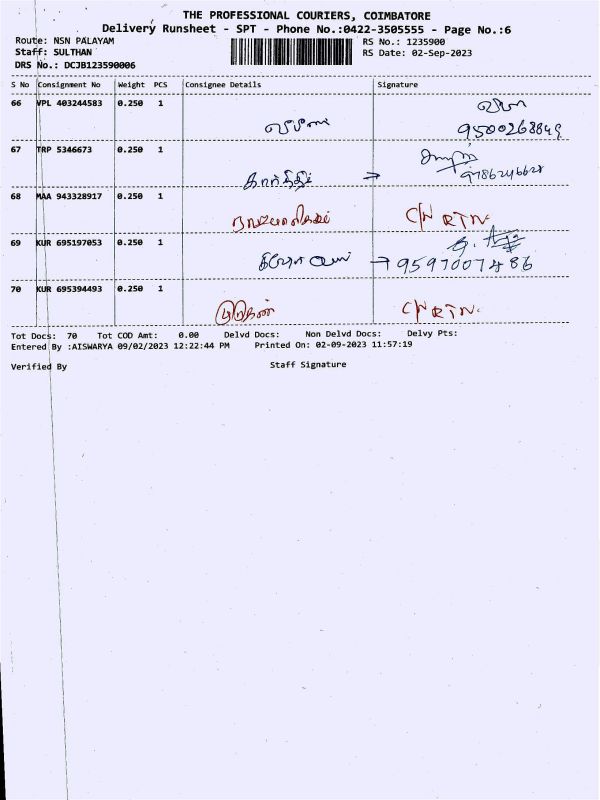 THE PROFESSIONAL COURIERS, COIMBATORE
Delivery Runsheet - SPT - Phone No.:0422-3505555 - Page No.:6
Route: NSN PALAYAM RS No.: 1235900
Staff: SULTHAN RS Date: 02-Sep-2023
DRS No.: DCJB123590006
S No Consignment No Weight PCS Consignee Details Signature
66 VPL 403244583 0.250 1
9500268849
67 TRP 5346673 0.250 1
கார்த்திக் → 9786246628
68 MAA 943328917 0.250 1
C/N RTN.
69 KUR 695197053 0.250 1
→ 9597007486
70 KUR 695394493 0.250 1
C/N RTN.
Tot Docs: 70 Tot COD Amt: 0.00 Delvd Docs: Non Delvd Docs: Delvy Pts:
Entered By :AISWARYA 09/02/2023 12:22:44 PM Printed On: 02-09-2023 11:57:19
Verified By Staff Signature